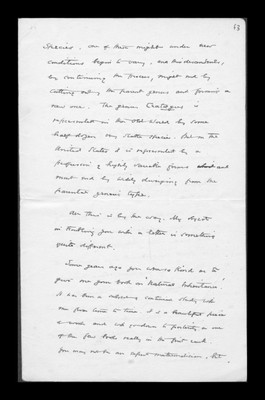 53
Species. one of them might under new
conditions begin to vary, and his descendants,
by continuing the process, might end by
cutting out the parent genus and forming a
new one. The genus Crataegus is
represented in the Old World by some
half dozen very stable species. But in the
United States it is represented by a
profusion of highly variable forms
and by widely diverging from the
parental generic type.
All this is by the way. My object
in troubling you with a letter is something
quite different.
Some years ago you were so kind as to
give me your book on "Natural Inheritance".
It has been a
me from time to time. It is a beautiful piece
of work and will go down to posterity as one
of the few books really in the first rank.
You may not be an expert mathematician, but